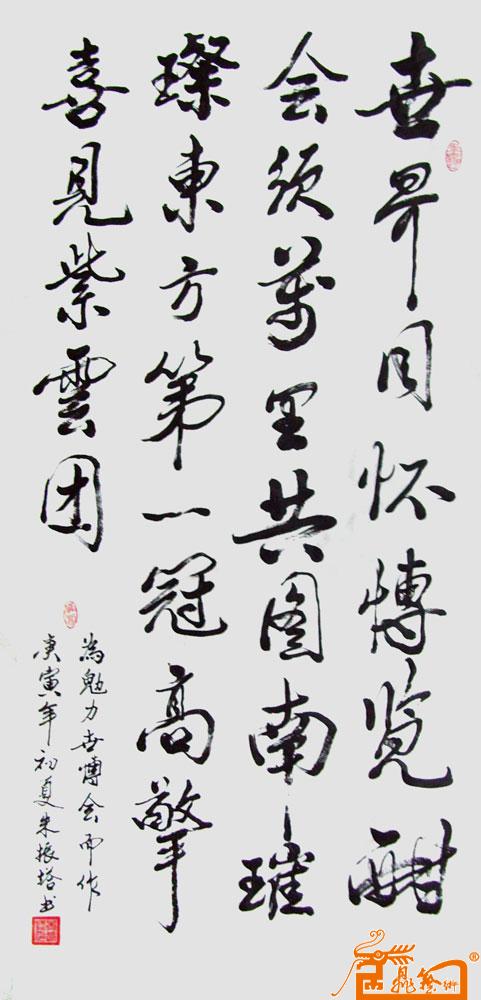 世界同怀博览酣
会须萬里共图南璀
璨東方第一冠高擎
喜見紫雲团
為勉力世博会而作
庚寅年初夏朱振塔书